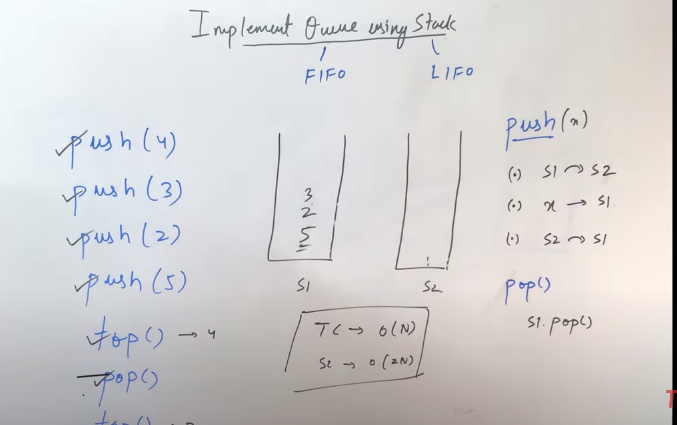 Implement Queue using Stack
FIFO
LIFO
push (4)
push (3)
push (2)
push (5)
top() → 4
pop()
3
2
5
S1
S2
TC → O(N)
SC → O(2N)
push (x)
(.) S1 → S2
(.) x → S1
(.) S2 → S1
pop()
S1.pop()